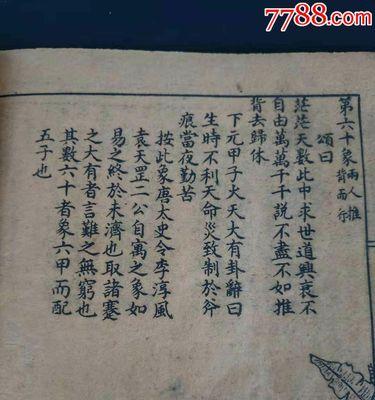 7788.com
第六十象 兩人推
背而行
頌曰
茫茫天數此中求世道興衰不
自由萬萬千千説不盡不如推
背去歸休
下元甲子火天大有卦辭曰
生時不利天命災致制於斧
痕當夜勤苦
按此象唐太史令李淳風
袁天罡二公自寓之象如
易之終於未濟也取諸蹇
之大有者言難之無窮也
其數六十者象六甲而配
五子也